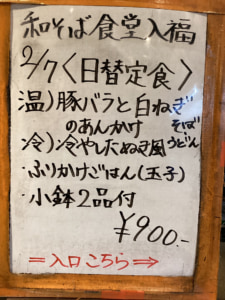 和そば食堂入福
2/7〈日替定食〉
温)豚バラと白ねぎ
のあんかけ そば
冷)冷やしたぬき風 うどん
・ふりかけごはん(玉子)
・小鉢2品付
¥900.-
＝入口こちら⇒